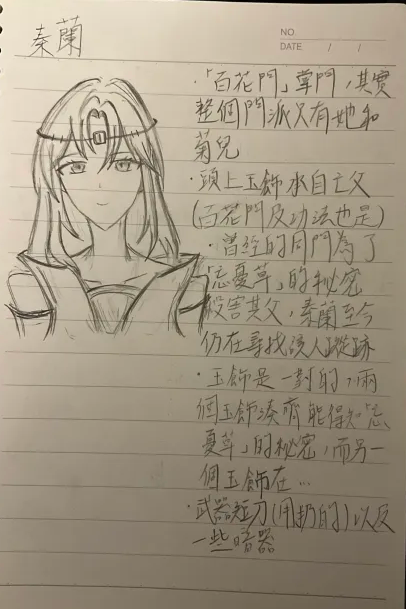 秦蘭
NO.
DATE / /
·「百花門」掌門,其實
整個門派只有她和
菊兒
·頭上玉飾來自亡父
(百花門及功法也是)
·曾經的同門為了
「忘憂草」的秘密
殺害其父,秦蘭至今
仍在尋找該人蹤跡
·玉飾是一對的,兩
個玉飾湊齊能得知「忘
憂草」的秘密,而另一
個玉飾在...
·武器短刀(用扔的)以及
一些暗器